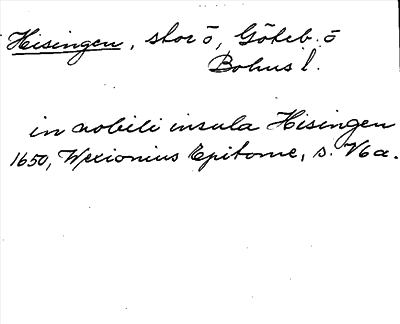 Hisingen, stor ö, Göteb. ö
Bohus l.
in nobili insula Hisingen
1650, Wexionius Epitome, s. V6a.